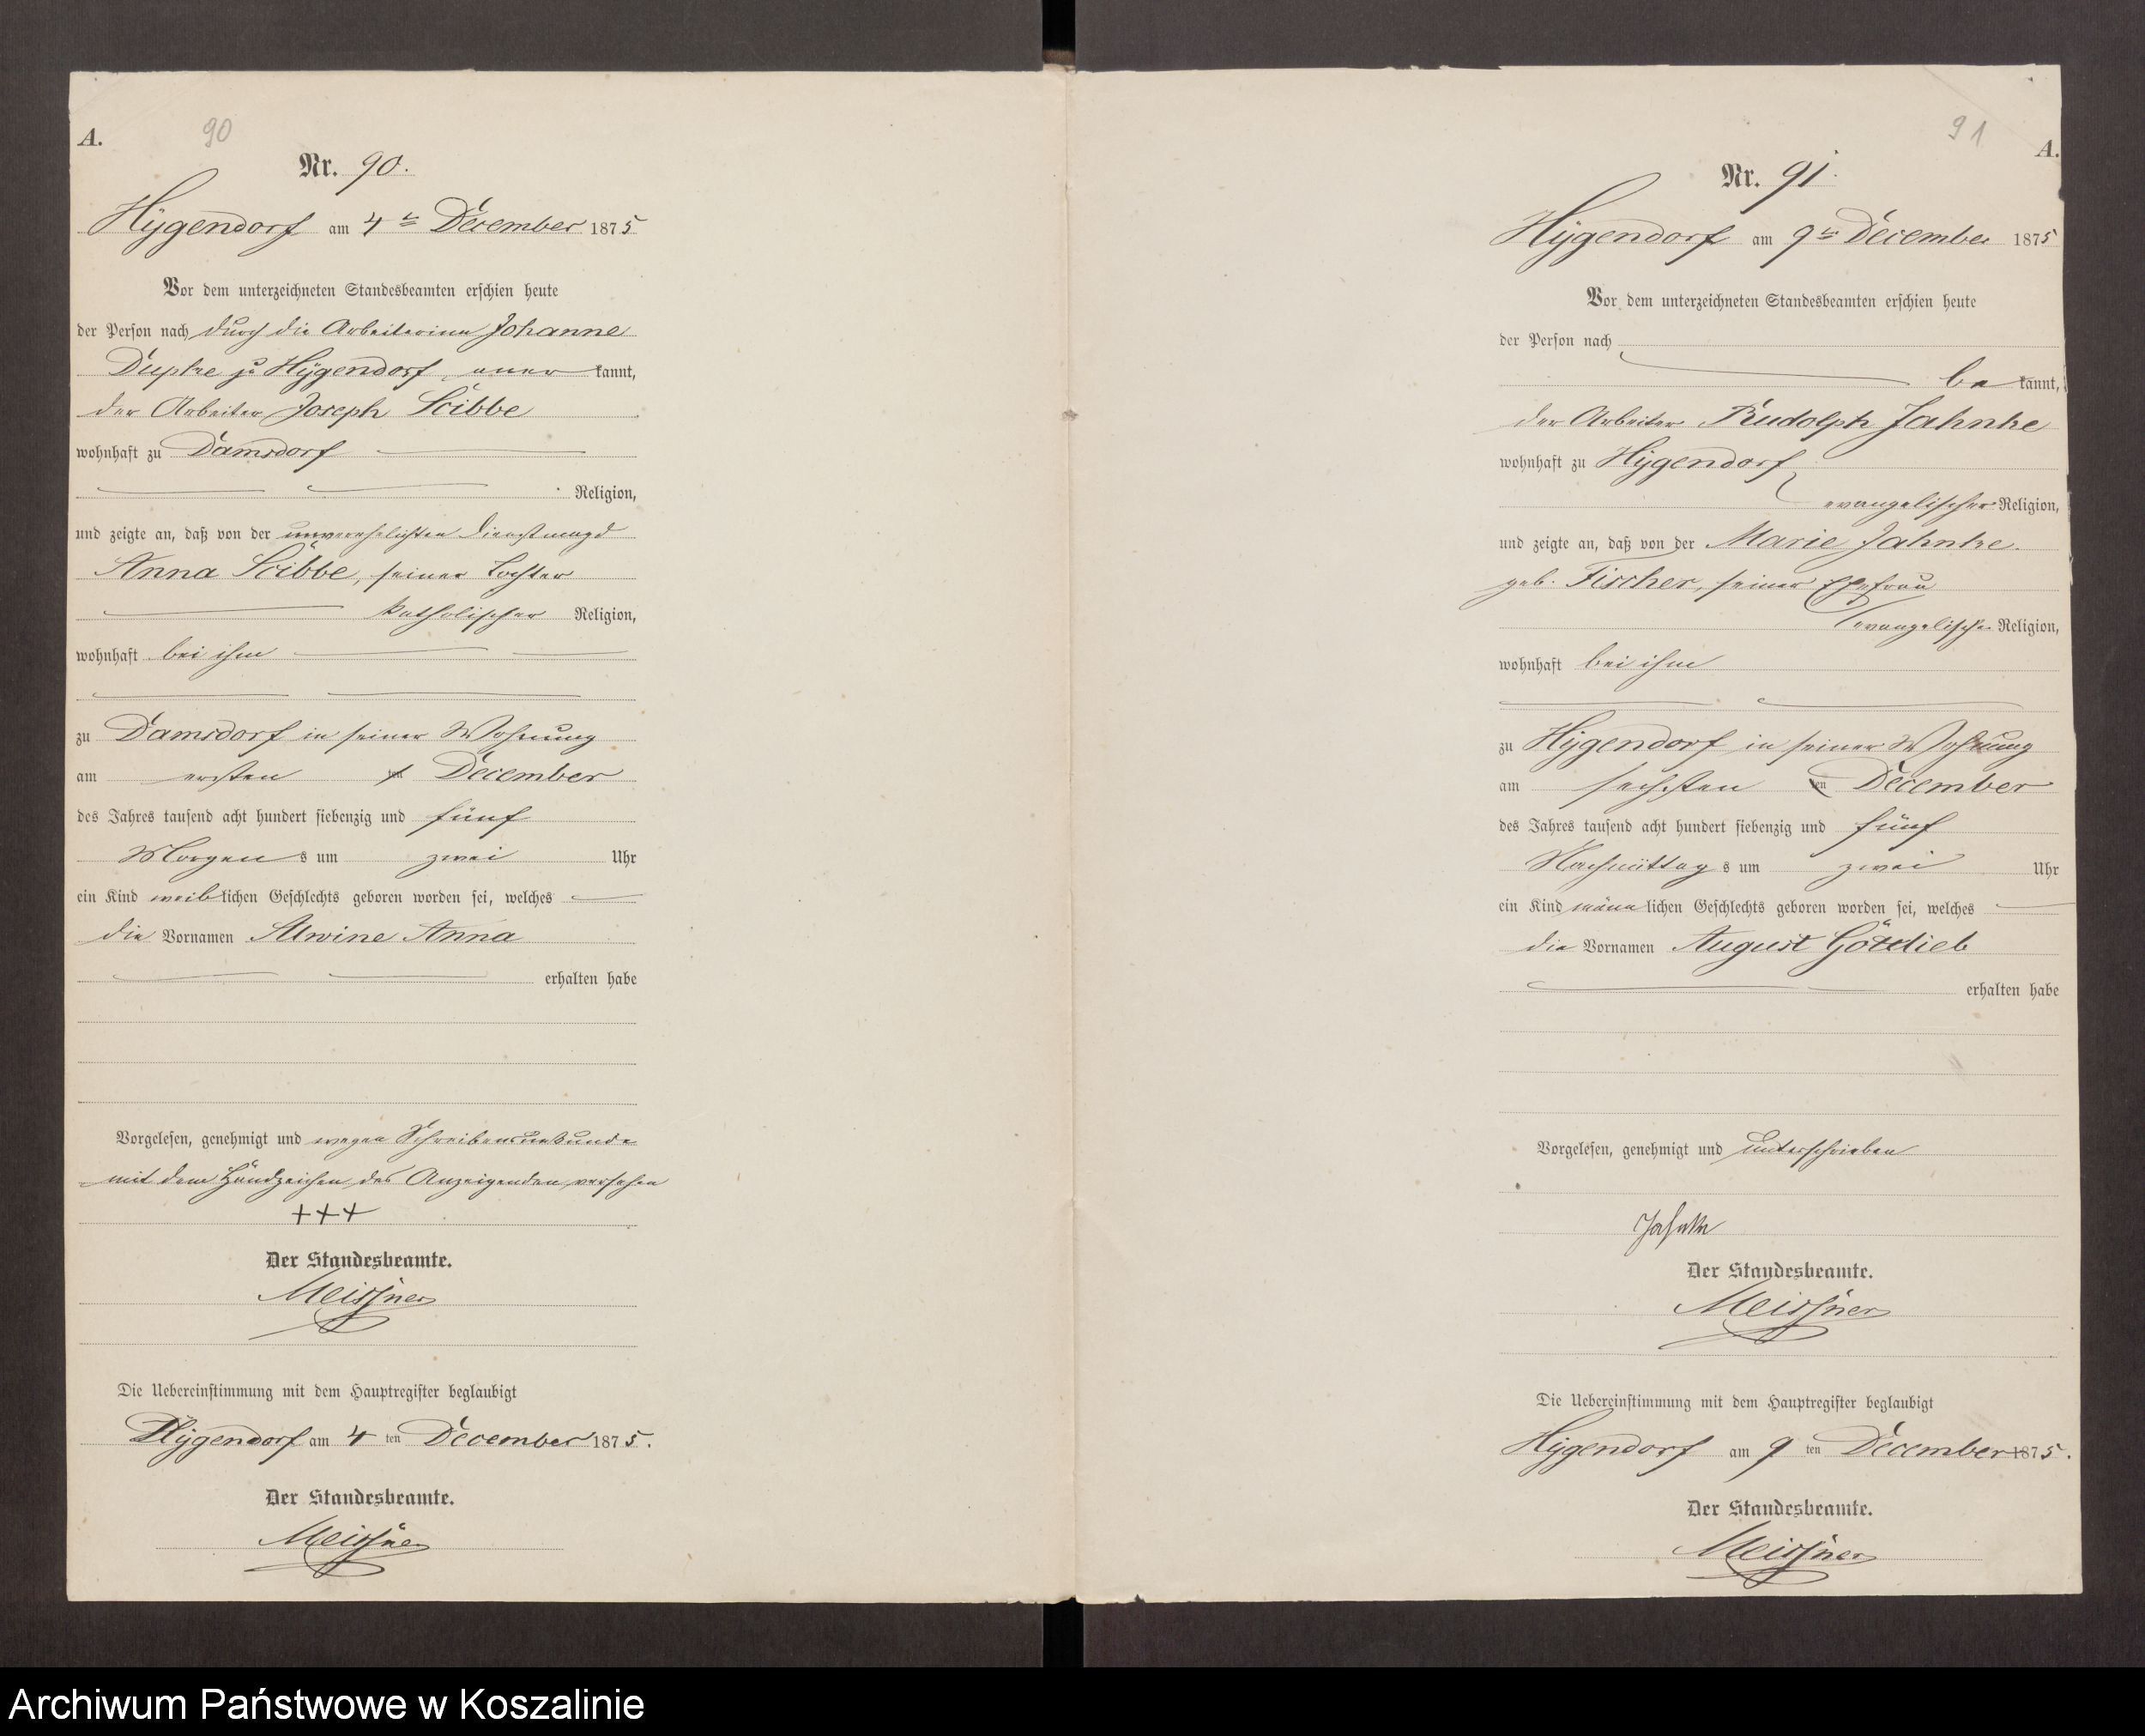 A.
90
Nr. 90.
Hygendorf am 4ten December 1875
Vor dem unterzeichneten Standesbeamten erschien heute
der Person nach durch die Arbeiterinn Johanne
Dupke zu Hygendorf, aner kannt,
der Arbeiter Joseph Scibbe
wohnhaft zu Damsdorf
Religion,
und zeigte an, daß von der unverehelichten Dienstmagd
Anna Scibbe, seiner Tochter
katholischer Religion,
wohnhaft bei ihm
zu Damsdorf in seiner Wohnung
am ersten ten December
des Jahres tausend acht hundert siebenzig und fünf
Morgen s um zwei Uhr
ein Kind weiblichen Geschlechts geboren worden sei, welches
die Vornamen Alwine Anna
erhalten habe
Vorgelesen, genehmigt und wegen Schreibensunkunde
mit dem Handzeichen des Anzeigenden versehen
+++
Der Standesbeamte.
Meissner
Die Uebereinstimmung mit dem Hauptregister beglaubigt
Hygendorf am 4 ten December 1875.
Der Standesbeamte.
Meissner
91
A.
Nr. 91.
Hygendorf am 9ten December 1875
Vor dem unterzeichneten Standesbeamten erschien heute
der Person nach
be kannt,
der Arbeiter Rudolph Jahnke
wohnhaft zu Hygendorf
evangelischer Religion,
und zeigte an, daß von der Marie Jahnke
geb. Fischer, seiner Ehefrau
evangelischer Religion,
wohnhaft bei ihm
zu Hygendorf in seiner Wohnung
am sechsten ten December
des Jahres tausend acht hundert siebenzig und fünf
Nachmittag s um zwei Uhr
ein Kind männlichen Geschlechts geboren worden sei, welches
die Vornamen August Gottlieb
erhalten habe
Vorgelesen, genehmigt und unterschrieben
Jahnke
Der Standesbeamte.
Meissner
Die Uebereinstimmung mit dem Hauptregister beglaubigt
Hygendorf am 9 ten December 1875.
Der Standesbeamte.
Meissner
Archiwum Państwowe w Koszalinie